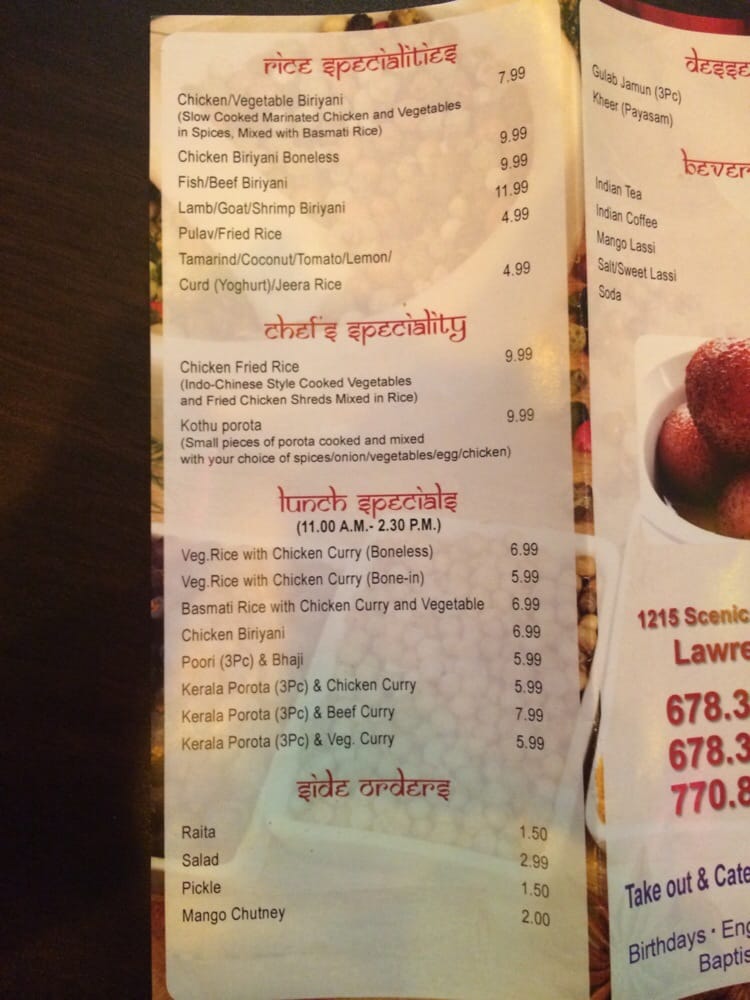 rice specialities
Chicken/Vegetable Biriyani 7.99
(Slow Cooked Marinated Chicken and Vegetables
in Spices, Mixed with Basmati Rice)
Chicken Biriyani Boneless 9.99
Fish/Beef Biriyani 9.99
Lamb/Goat/Shrimp Biriyani 11.99
Pulav/Fried Rice 4.99
Tamarind/Coconut/Tomato/Lemon/
Curd (Yoghurt)/Jeera Rice 4.99
chef's speciality
Chicken Fried Rice 9.99
(Indo-Chinese Style Cooked Vegetables
and Fried Chicken Shreds Mixed in Rice)
Kothu porota 9.99
(Small pieces of porota cooked and mixed
with your choice of spices/onion/vegetables/egg/chicken)
lunch specials
(11.00 A.M.- 2.30 P.M.)
Veg.Rice with Chicken Curry (Boneless) 6.99
Veg.Rice with Chicken Curry (Bone-in) 5.99
Basmati Rice with Chicken Curry and Vegetable 6.99
Chicken Biriyani 6.99
Poori (3Pc) & Bhaji 5.99
Kerala Porota (3Pc) & Chicken Curry 5.99
Kerala Porota (3Pc) & Beef Curry 7.99
Kerala Porota (3Pc) & Veg. Curry 5.99
side orders
Raita 1.50
Salad 2.99
Pickle 1.50
Mango Chutney 2.00
desse
Gulab Jamun (3Pc)
Kheer (Payasam)
bever
Indian Tea
Indian Coffee
Mango Lassi
Salt/Sweet Lassi
Soda
1215 Scenic
Lawre
678.3
678.3
770.8
Take out & Cate
Birthdays · Eng
Baptis